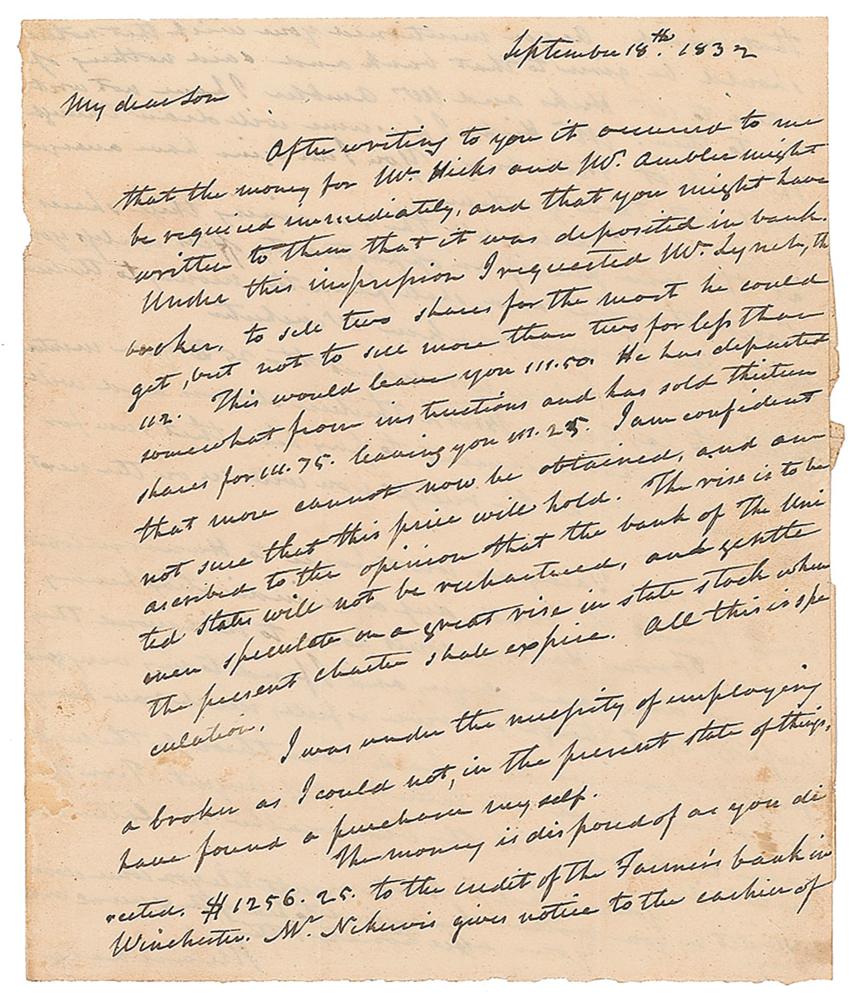 September 18th. 1832
My dear Son
After writing to you it occurred to me
that the money for Mr. Hicks and Mr. Ambler might
be required immediately, and that you might have
written to them that it was deposited in bank.
Under this impression I requested Mr. Lynch, th
broker, to sell two shares for the most he could
get, but not to sell more than two for less than
112. This would leave you 111.50. He has departed
somewhat from instructions and has sold thirteen
shares for 111.75. leaving you 111.25. I am confident
that more cannot now be obtained, and am
not sure that this price will hold. The rise is to be
ascribed to the opinion that the bank of The Uni
ted States will not be rechartered, and gentle
men speculate on a great rise in state stock when
the present charter shall expire. All this is spe
culation.
I was under the necessity of employing
a broker as I could not, in the present state of things,
have found a purchaser myself.
The money is disposed of as you di
rected. $1256.25. to the credit of the Farmer's bank in
Winchester. Mr. Nekervis gives notice to the cashier of